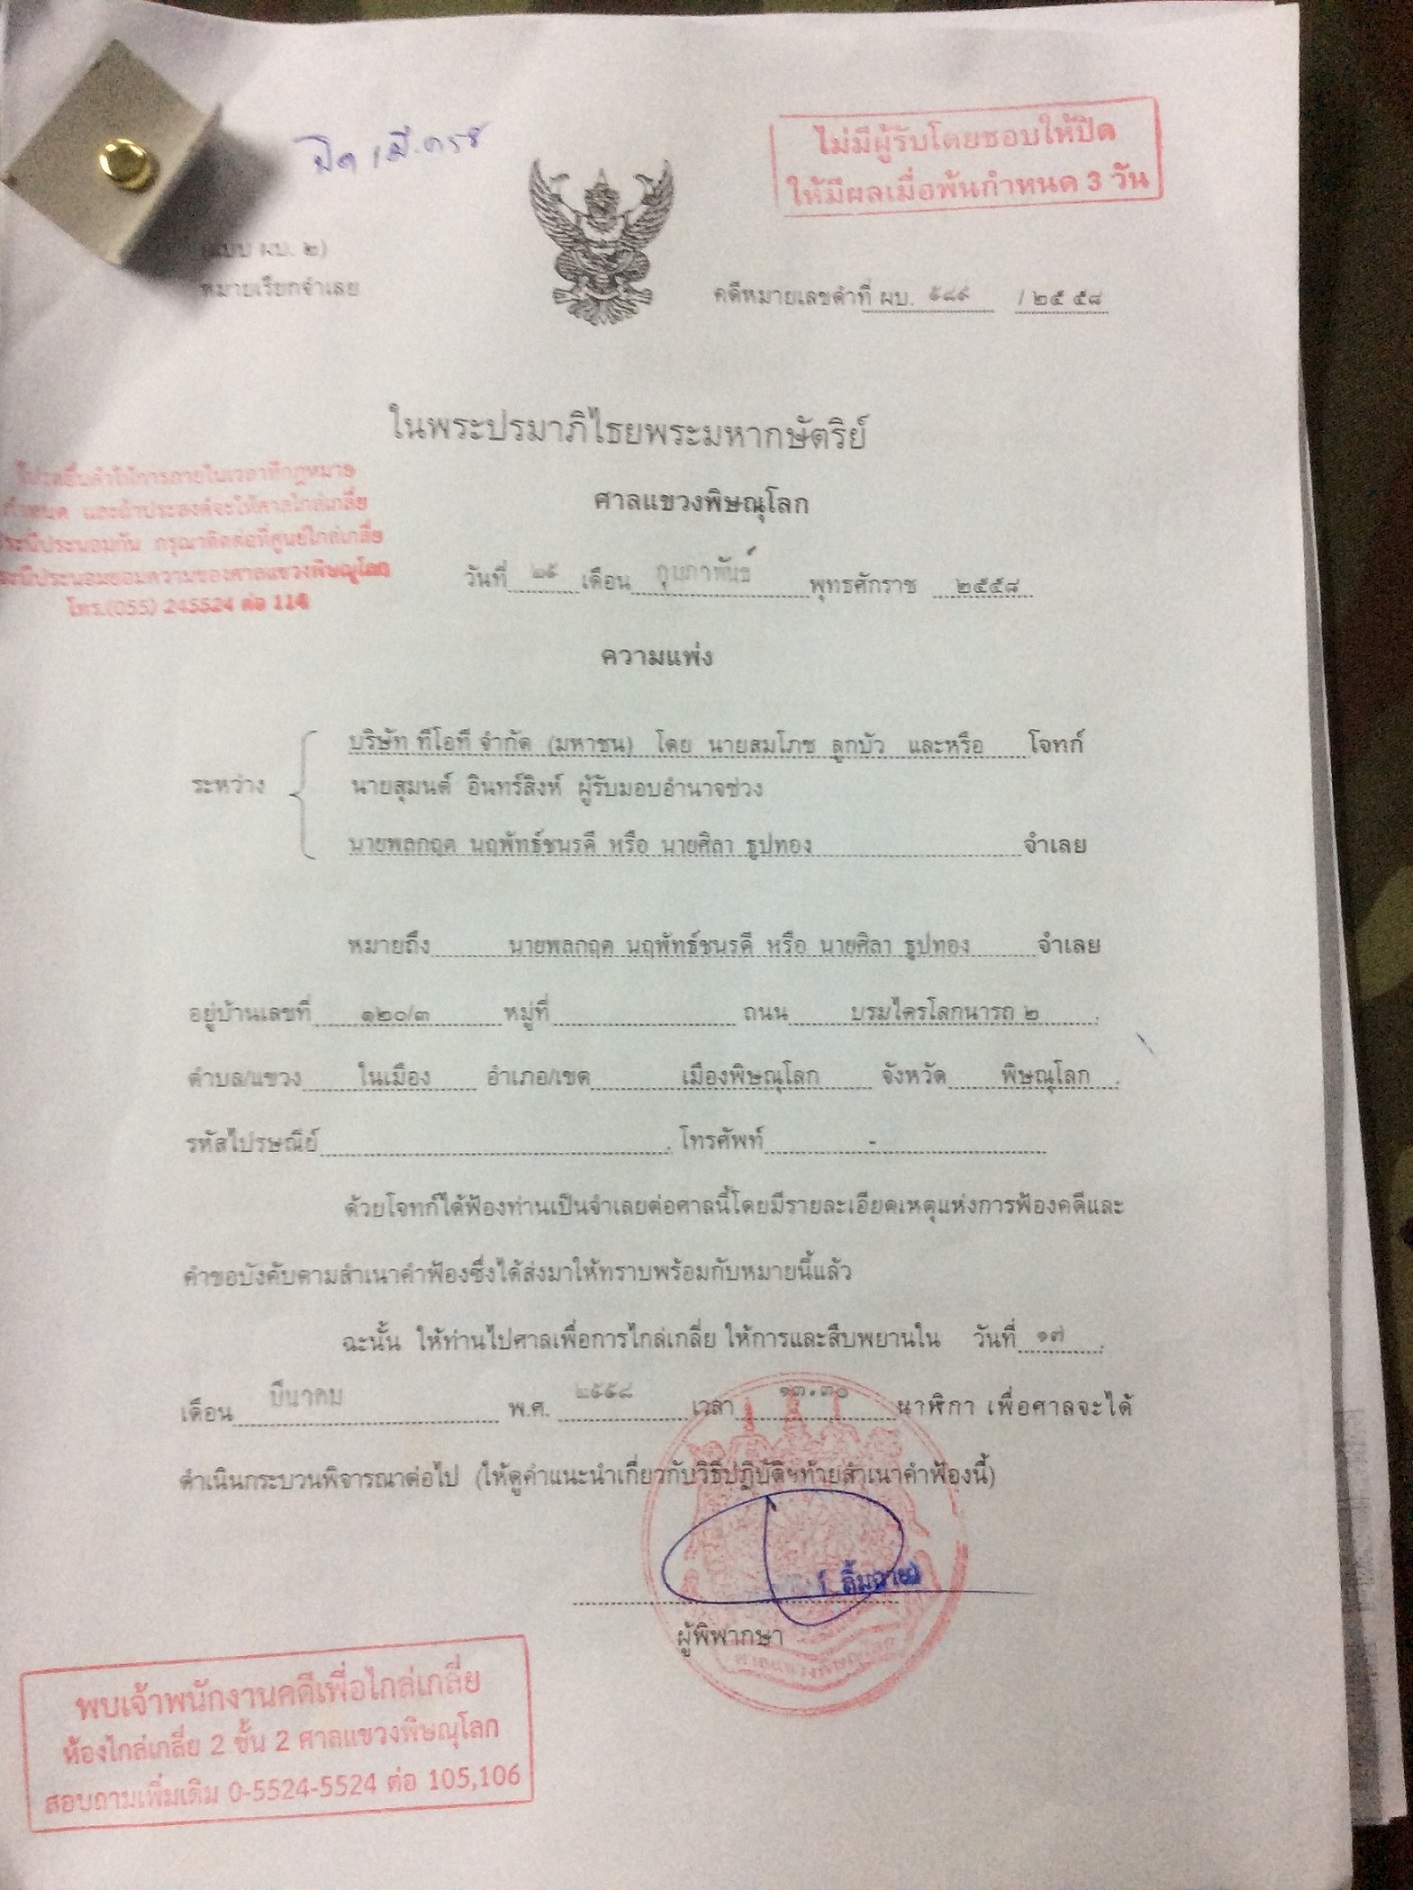 ไม่มีผู้รับโดยชอบให้ปิด
ให้มีผลเมื่อพ้นกำหนด 3 วัน
(แบบ ผบ. ๒)
หมายเรียกจำเลย
คดีหมายเลขดำที่ ผบ. ๕๘๙ / ๒๕๕๘
ในพระปรมาภิไธยพระมหากษัตริย์
โปรดยื่นคำให้การภายในเวลาที่กฎหมาย
กำหนด และถ้าประสงค์จะให้ศาลไกล่เกลี่ย
ประนีประนอมกัน กรุณาติดต่อที่ศูนย์ไกล่เกลี่ย
ประนีประนอมยอมความของศาลแขวงพิษณุโลก
โทร.(055) 245524 ต่อ 114
ศาลแขวงพิษณุโลก
วันที่ ๒๕ เดือน กุมภาพันธ์ พุทธศักราช ๒๕๕๘
ความแพ่ง
บริษัท ทีโอที จำกัด (มหาชน) โดย นายสมโภช ลูกบัว และหรือ โจทก์
ระหว่าง นายสุมนต์ อินทร์สิงห์ ผู้รับมอบอำนาจช่วง
นายพลกฤต นฤพัทธ์ชนรดี หรือ นายศิลา ธูปทอง จำเลย
หมายถึง นายพลกฤต นฤพัทธ์ชนรดี หรือ นายศิลา ธูปทอง จำเลย
อยู่บ้านเลขที่ ๑๒๐/๓ หมู่ที่ ถนน บรมไตรโลกนารถ ๒
ตำบล/แขวง ในเมือง อำเภอ/เขต เมืองพิษณุโลก จังหวัด พิษณุโลก
รหัสไปรษณีย์ โทรศัพท์ -
ด้วยโจทก์ได้ฟ้องท่านเป็นจำเลยต่อศาลนี้โดยมีรายละเอียดเหตุแห่งการฟ้องคดีและ
คำขอบังคับตามสำเนาคำฟ้องซึ่งได้ส่งมาให้ทราบพร้อมกับหมายนี้แล้ว
ฉะนั้น ให้ท่านไปศาลเพื่อการไกล่เกลี่ย ให้การและสืบพยานใน วันที่ ๑๗
เดือน มีนาคม พ.ศ. ๒๕๕๘ เวลา ๑๓.๓๐ นาฬิกา เพื่อศาลจะได้
ดำเนินกระบวนพิจารณาต่อไป (ให้ดูคำแนะนำเกี่ยวกับวิธีปฏิบัติฯท้ายสำเนาคำฟ้องนี้)
ผู้พิพากษา
ศาลแขวงพิษณุโลก
พบเจ้าพนักงานคดีเพื่อไกล่เกลี่ย
ห้องไกล่เกลี่ย 2 ชั้น 2 ศาลแขวงพิษณุโลก
สอบถามเพิ่มเติม 0-5524-5524 ต่อ 105,106